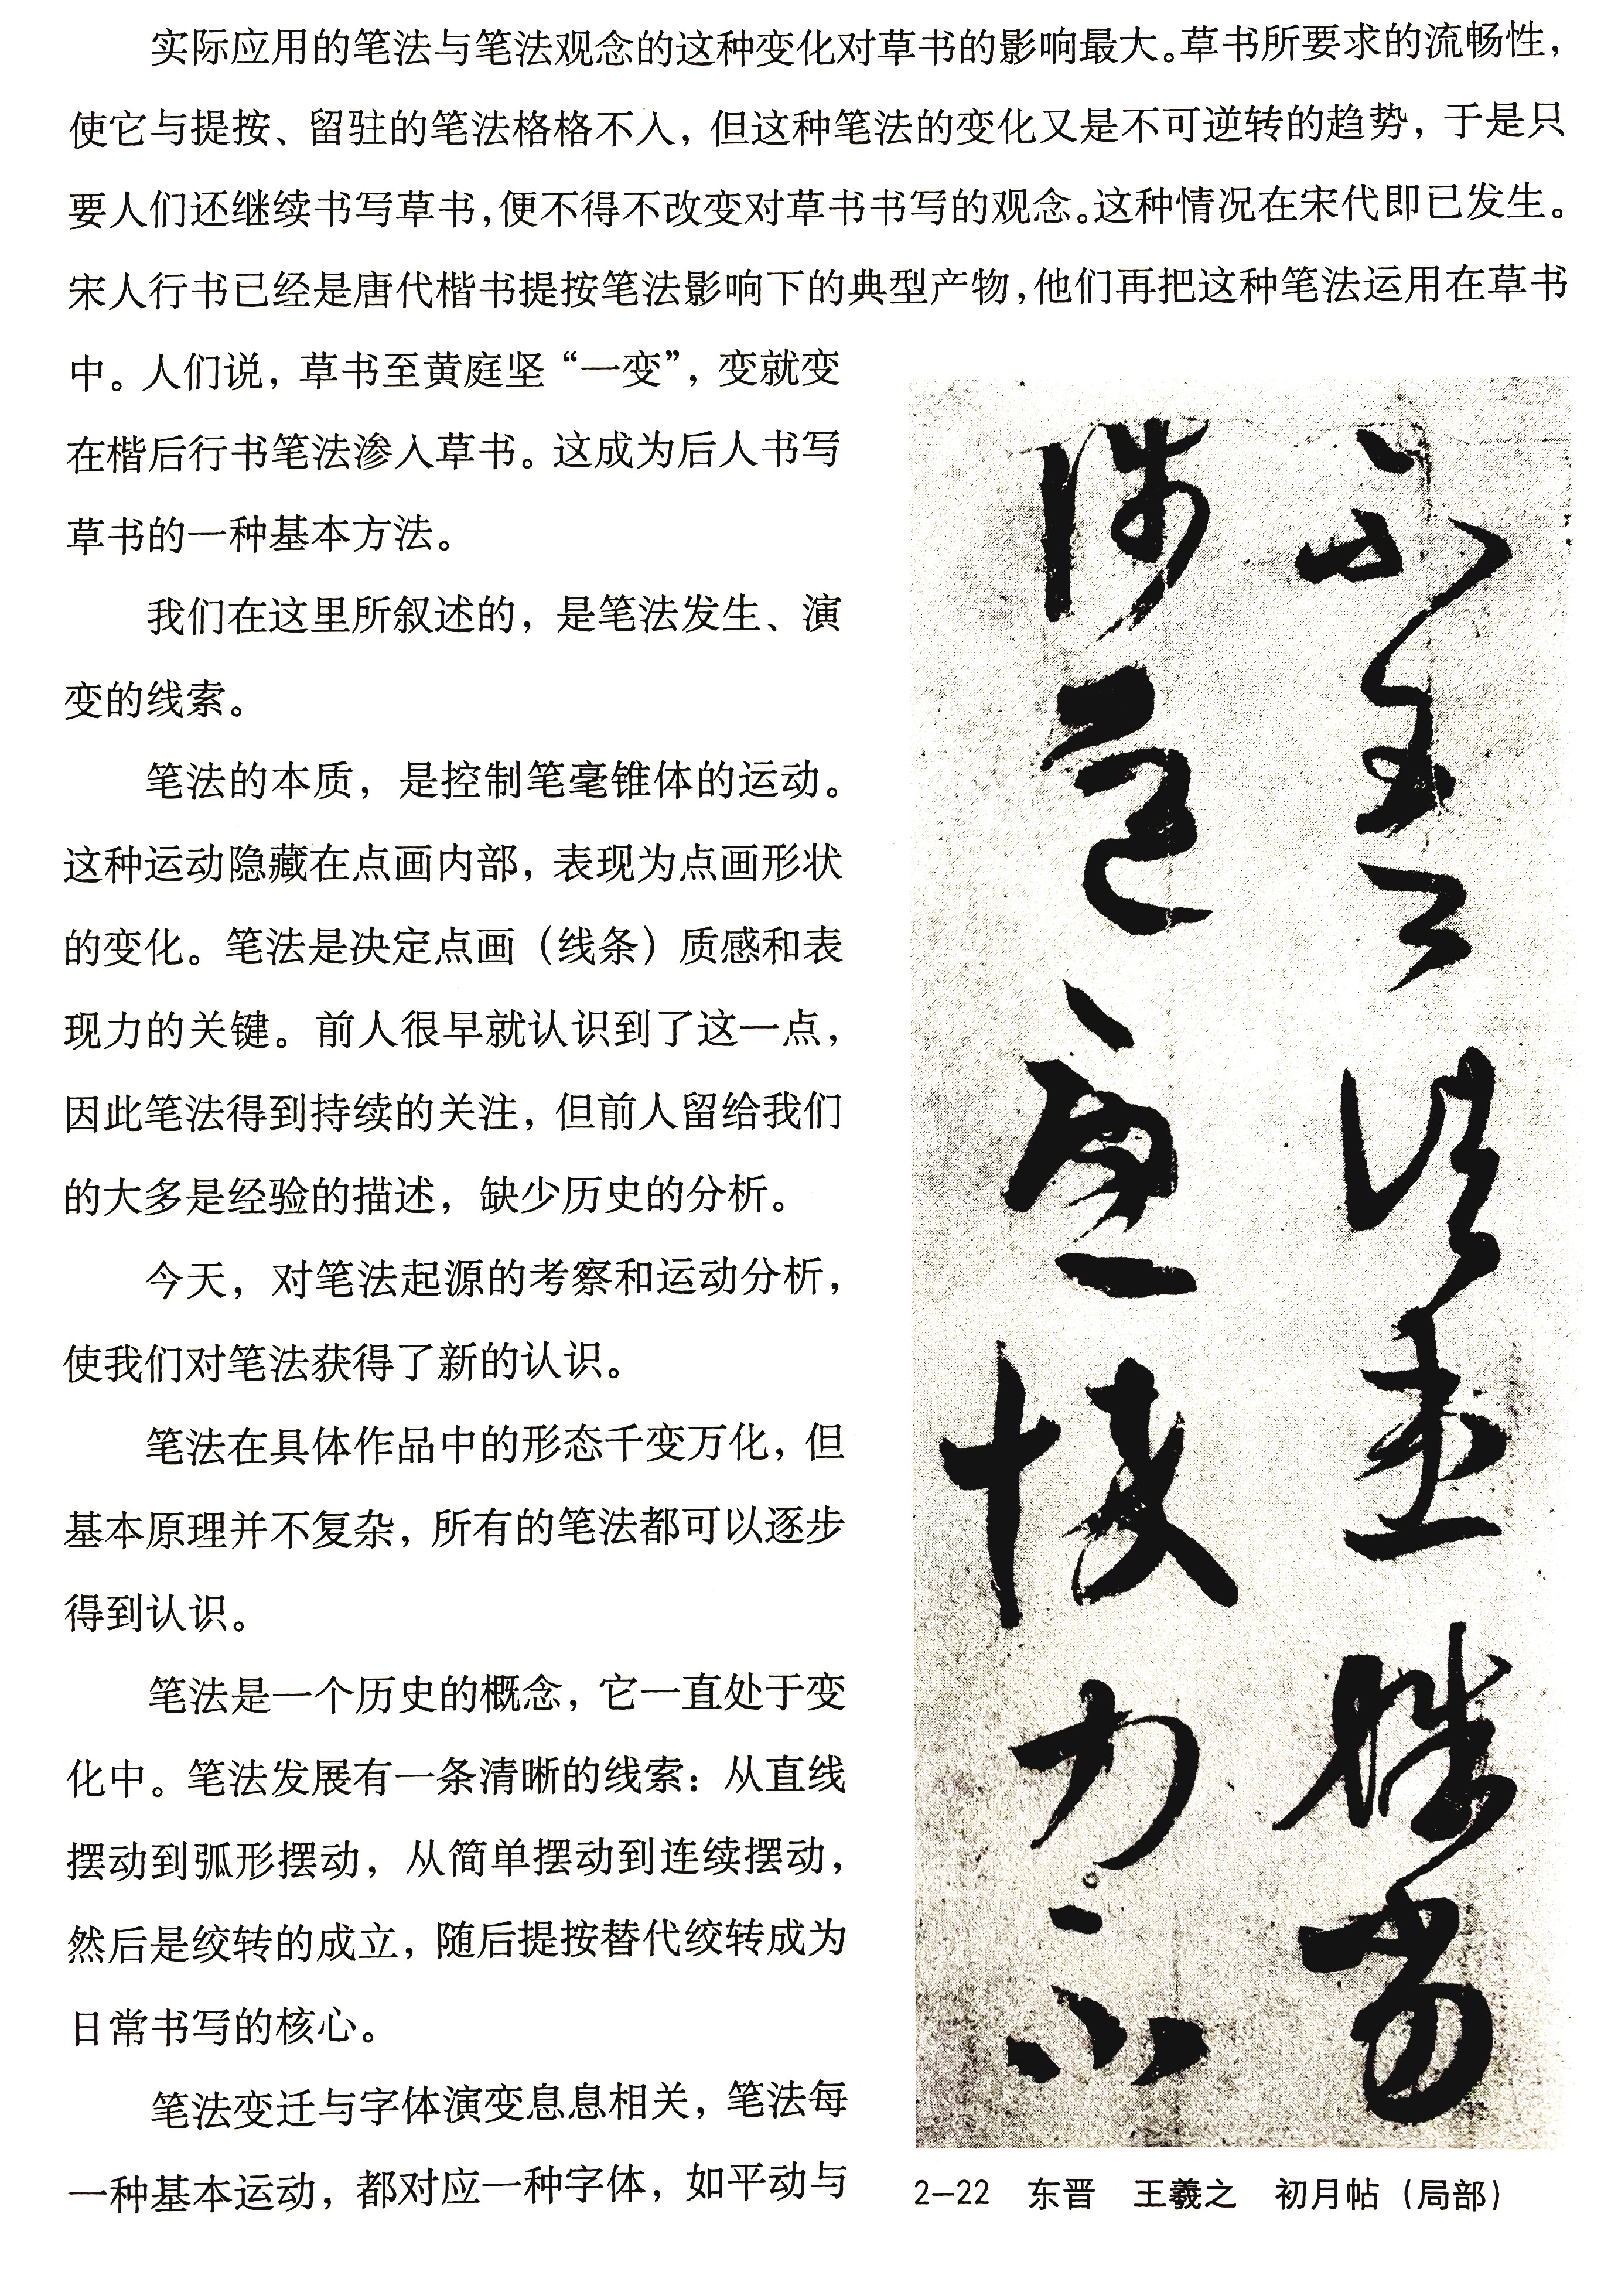 实际应用的笔法与笔法观念的这种变化对草书的影响最大。草书所要求的流畅性，
使它与提按、留驻的笔法格格不入，但这种笔法的变化又是不可逆转的趋势，于是只
要人们还继续书写草书，便不得不改变对草书书写的观念。这种情况在宋代即已发生。
宋人行书已经是唐代楷书提按笔法影响下的典型产物，他们再把这种笔法运用在草书
中。人们说，草书至黄庭坚“一变”，变就变
在楷后行书笔法渗入草书。这成为后人书写
草书的一种基本方法。
我们在这里所叙述的，是笔法发生、演
变的线索。
笔法的本质，是控制笔毫锥体的运动。
这种运动隐藏在点画内部，表现为点画形状
的变化。笔法是决定点画（线条）质感和表
现力的关键。前人很早就认识到了这一点，
因此笔法得到持续的关注，但前人留给我们
的大多是经验的描述，缺少历史的分析。
今天，对笔法起源的考察和运动分析，
使我们对笔法获得了新的认识。
笔法在具体作品中的形态千变万化，但
基本原理并不复杂，所有的笔法都可以逐步
得到认识。
笔法是一个历史的概念，它一直处于变
化中。笔法发展有一条清晰的线索：从直线
摆动到弧形摆动，从简单摆动到连续摆动，
然后是绞转的成立，随后提按替代绞转成为
日常书写的核心。
笔法变迁与字体演变息息相关，笔法每
一种基本运动，都对应一种字体，如平动与
2—22 东晋 王羲之 初月帖（局部）